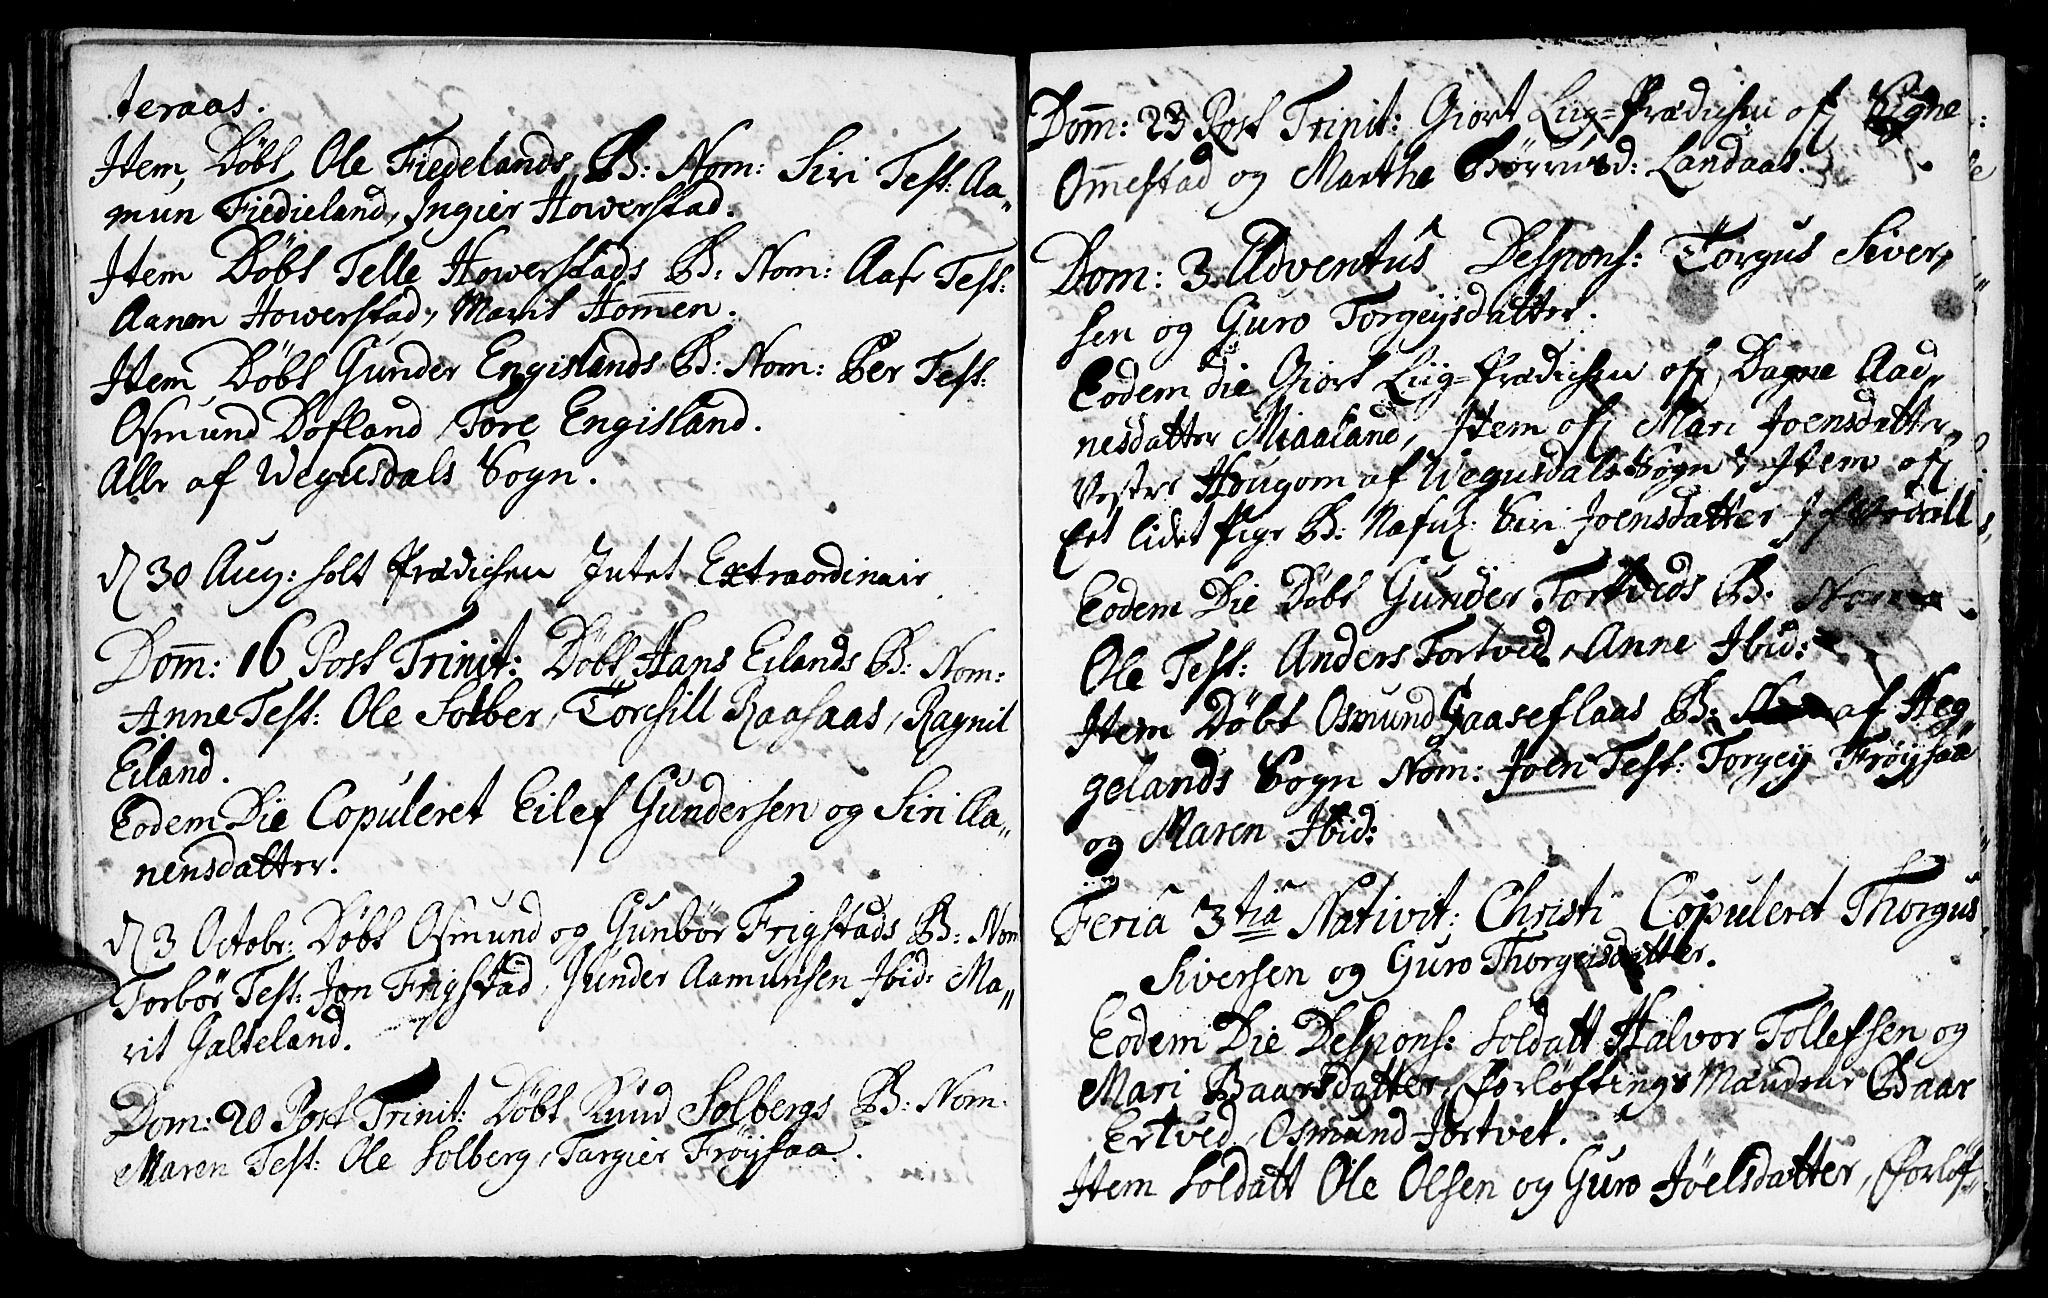 teraas.
Item, Döbt Ole Fiedelands B: Nom: Siri Test: Aa„
mun Fiedieland, Ingier Howerstad.
Item Döbt Telle Howerstads B: Nom: Aaf Test:
Aanen Howerstad, Marit Hom̄en.
Item Döbt Gunder Engislands B: Nom: Per Test:
Osmund Dofland, Tore Engisland.
Alle af Wegusdals Sogn.
d 30 Aug: holt Prædichen Intet Extraordinair
Dom̄: 16 Post Trinit: Döbt Hans Eilands B: Nom:
Anne Test: Ole Solber, Torchill Raasaas, Ragnil
Eiland.
Eodem Die Copuleret Eilef Gundersen og Siri Aa„
nensdatter.
d 3 Octobr: Döbt Osmund og Gunbör Frigstads B: Nom
Torbör Test: Jon Frigstad, Gunder Aamunsen Ibid: Ma„
rit Galteland.
Dom: 20 Post Trinit: Döbt Knud Solbergs B: Nom:
Maren Test: Ole Solberg, Targier Fröysaa.
Dom̄: 23 Post Trinit: Giort Liig=Prædichen ofr Signe
Om̄estad og Marthe Börrusd: Landaas.
Dom: 3 Adventus Despons: Torgus Siver„
sen og Guro Torgeysdatter.
Eodem die Giort Liig=Prædichen ofr Dagne Aad„
nesdatter Miaaland, Item ofr Mari Joensdatter
Vestre Hougom af Wegusdals Sogn Item ofr
Eet lidet Pige B: Nafnl: Siri Joensdatter
Eodem Die Döbt Gunder Tortveds B: Nom
Ole Test: Anders Tortved, Anne Ibid:
Item Döbt Osmund Gaaseflaas B: af Heg„
gelands Sogn Nom: Joen Test: Torgey Fröysaa
og Maren Ibid:
Feria 3tia Nativit: Christi Copuleret Thorgus
Siversen og Guro Thorgeisdatter.
Eodem Die Despons: Soldatt Halvor Tollefsen og
Mari Baarsdatter, Forløftnings Mændene Baar
Ertved, Osmund Jortvet.
Item Soldatt Ole Olsen og Guro Jöelsdatter, Forlöf„